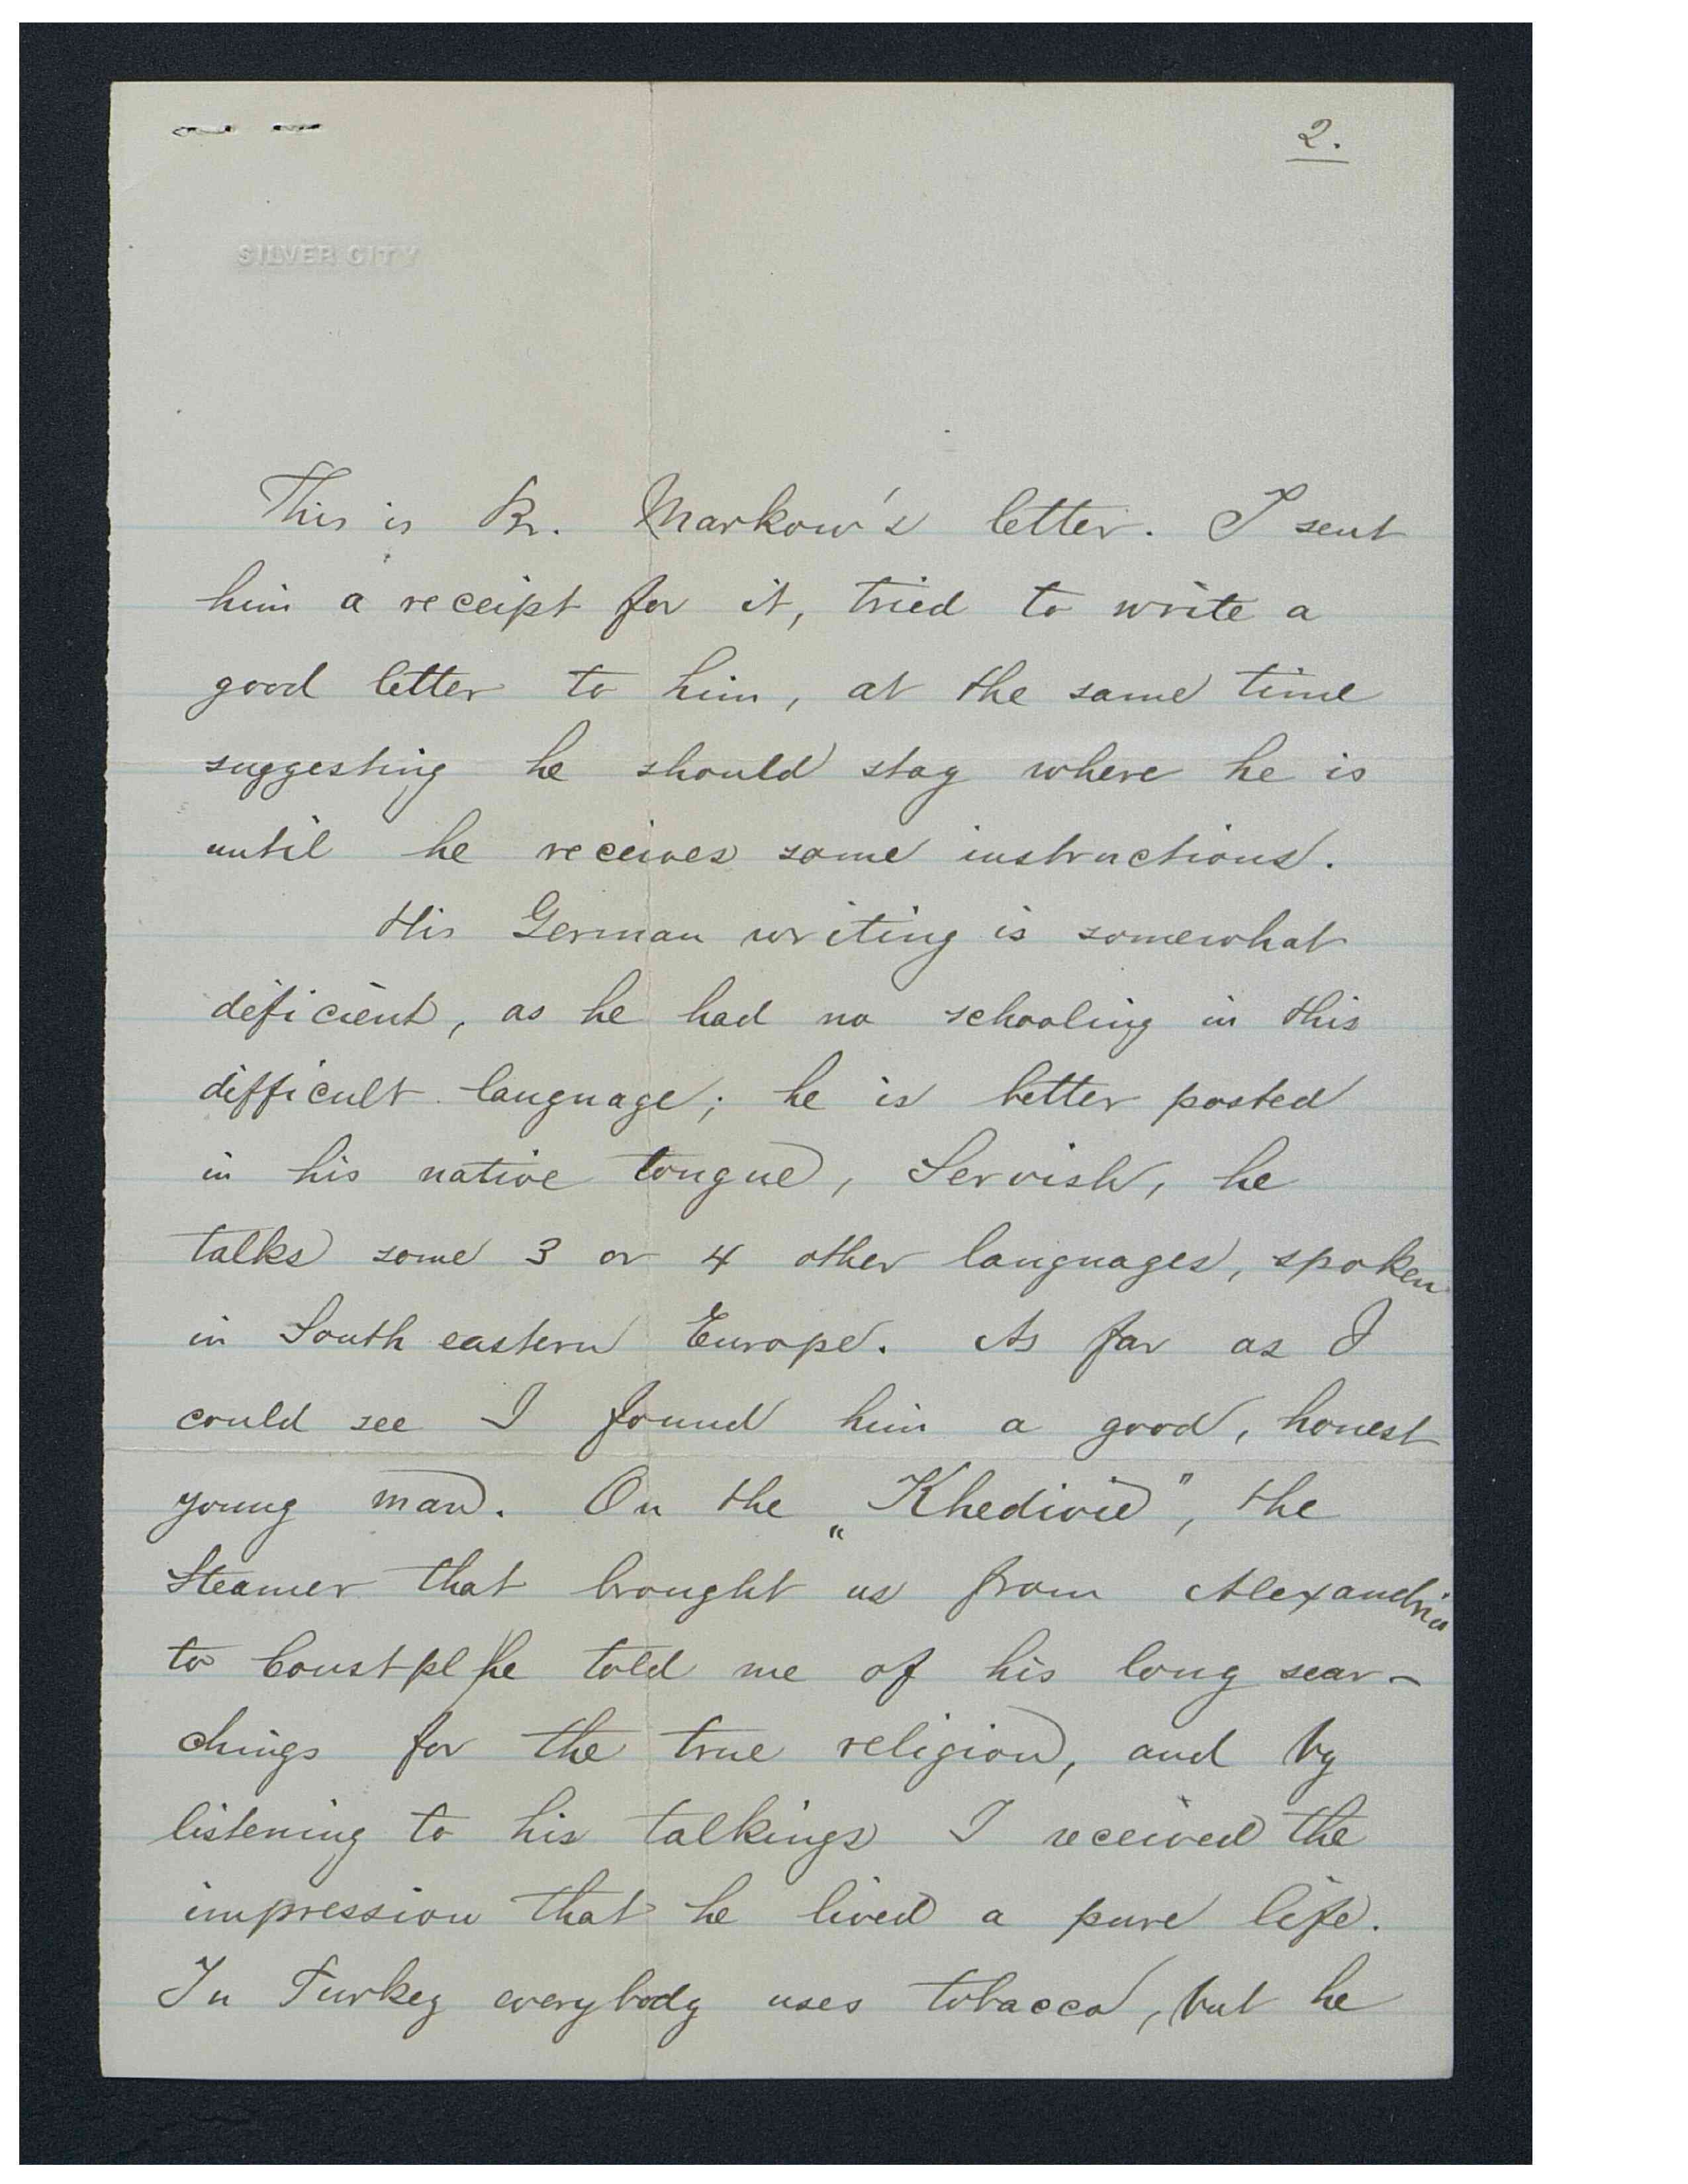 2.
SILVER CITY
This is Br. Markow's letter. I sent
him a receipt for it, tried to write a
good letter to him, at the same time
suggesting he should stay where he is
until he receives some instructions.
His German writing is somewhat
deficient, as he had no schooling in this
difficult language; he is better posted
in his native tongue, Servish, he
talks some 3 or 4 other languages, spoken
in South eastern Europe. As far as I
could see I found him a good, honest
young man. On the „Khedivie", the
Steamer that brought us from Alexandria
to Constpl he told me of his long sear-
chings for the true religion, and by
listening to his talkings I received the
impression that he lived a pure life.
In Turkey everybody uses tobacco, but he